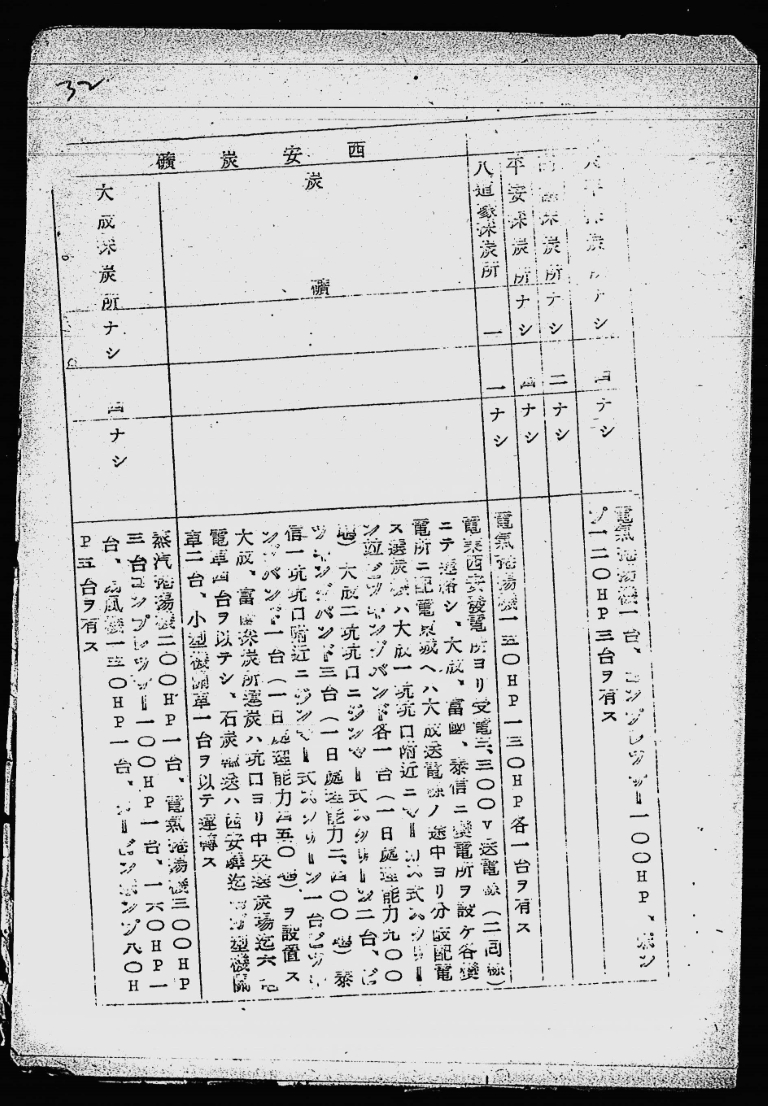 32
西安炭礦
採炭所ナシ 四ナシ
電氣捲揚機一台、コンプレッサー一〇〇HP、ポン
プ一二〇HP三台ヲ有ス
採炭所ナシ 二ナシ
平安採炭所ナシ 四ナシ
八道豪採炭所 一 一ナシ
電氣捲揚機一五〇HP一三〇HP各一台ヲ有ス
炭礦
電氣西安發電所ヨリ受電三、三〇〇V送電線(二回線)
ニテ連絡シ、大成、富國、泰信ニ變電所ヲ設ケ各變
電所ニ配電 城ヘハ大成送電線ノ途中ヨリ分岐配電
ス選炭機ハ大成一坑坑口附近ニ 式スクリー
ン竝ピッキングバンド各一台(一日處理能力九〇〇
瓲)大成二坑坑口ニジンマー式スクリーン二台、ピ
ッキングバンド三台(一日處理能力二、四〇〇瓲)泰
信一坑坑口附近ニジンマー式スクリーン一台ピッキ
ングバンド一台(一日處理能力四五〇瓲)ヲ設置ス
大成、富國採炭所選炭ハ坑口ヨリ中央選炭場迄六瓲
電車四台ヲ以テシ、石炭輸送ハ西安驛迄 型機關
車二台、小型機關車一台ヲ以テ運轉ス
大成採炭所ナシ 四ナシ
蒸汽捲揚機二〇〇HP一台、電氣捲揚機三〇〇HP
三台コンプレッサー一〇〇HP一台、一六〇HP一
台、扇風機一五〇HP一台、タービンポンプ八〇H
P五台ヲ有ス